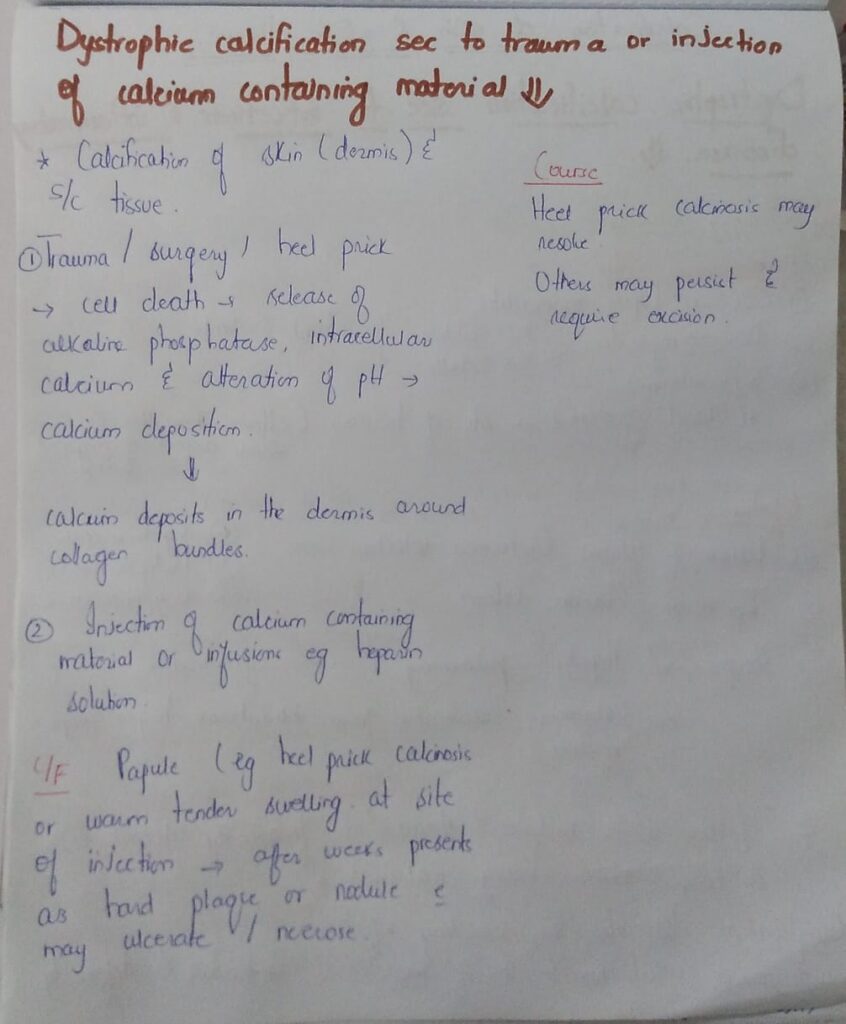 Dystrophic calcification sec to trauma or injection
of calcium containing material ⇓
* Calcification of skin (dermis) &
s/c tissue.
① Trauma / surgery / heel prick
→ cell death → release of
alkaline phosphatase, intracellular
calcium & alteration of pH →
calcium deposition.
↓
calcium deposits in the dermis around
collagen bundles.
② Injection of calcium containing
material or infusions eg heparin
solution.
C/F Papule (eg heel prick calcinosis
or warm tender swelling at site
of injection → after weeks presents
as hard plaque or nodule c̄
may ulcerate / necrose.
Course
Heel prick calcinosis may
resolve
Others may persist &
require excision.